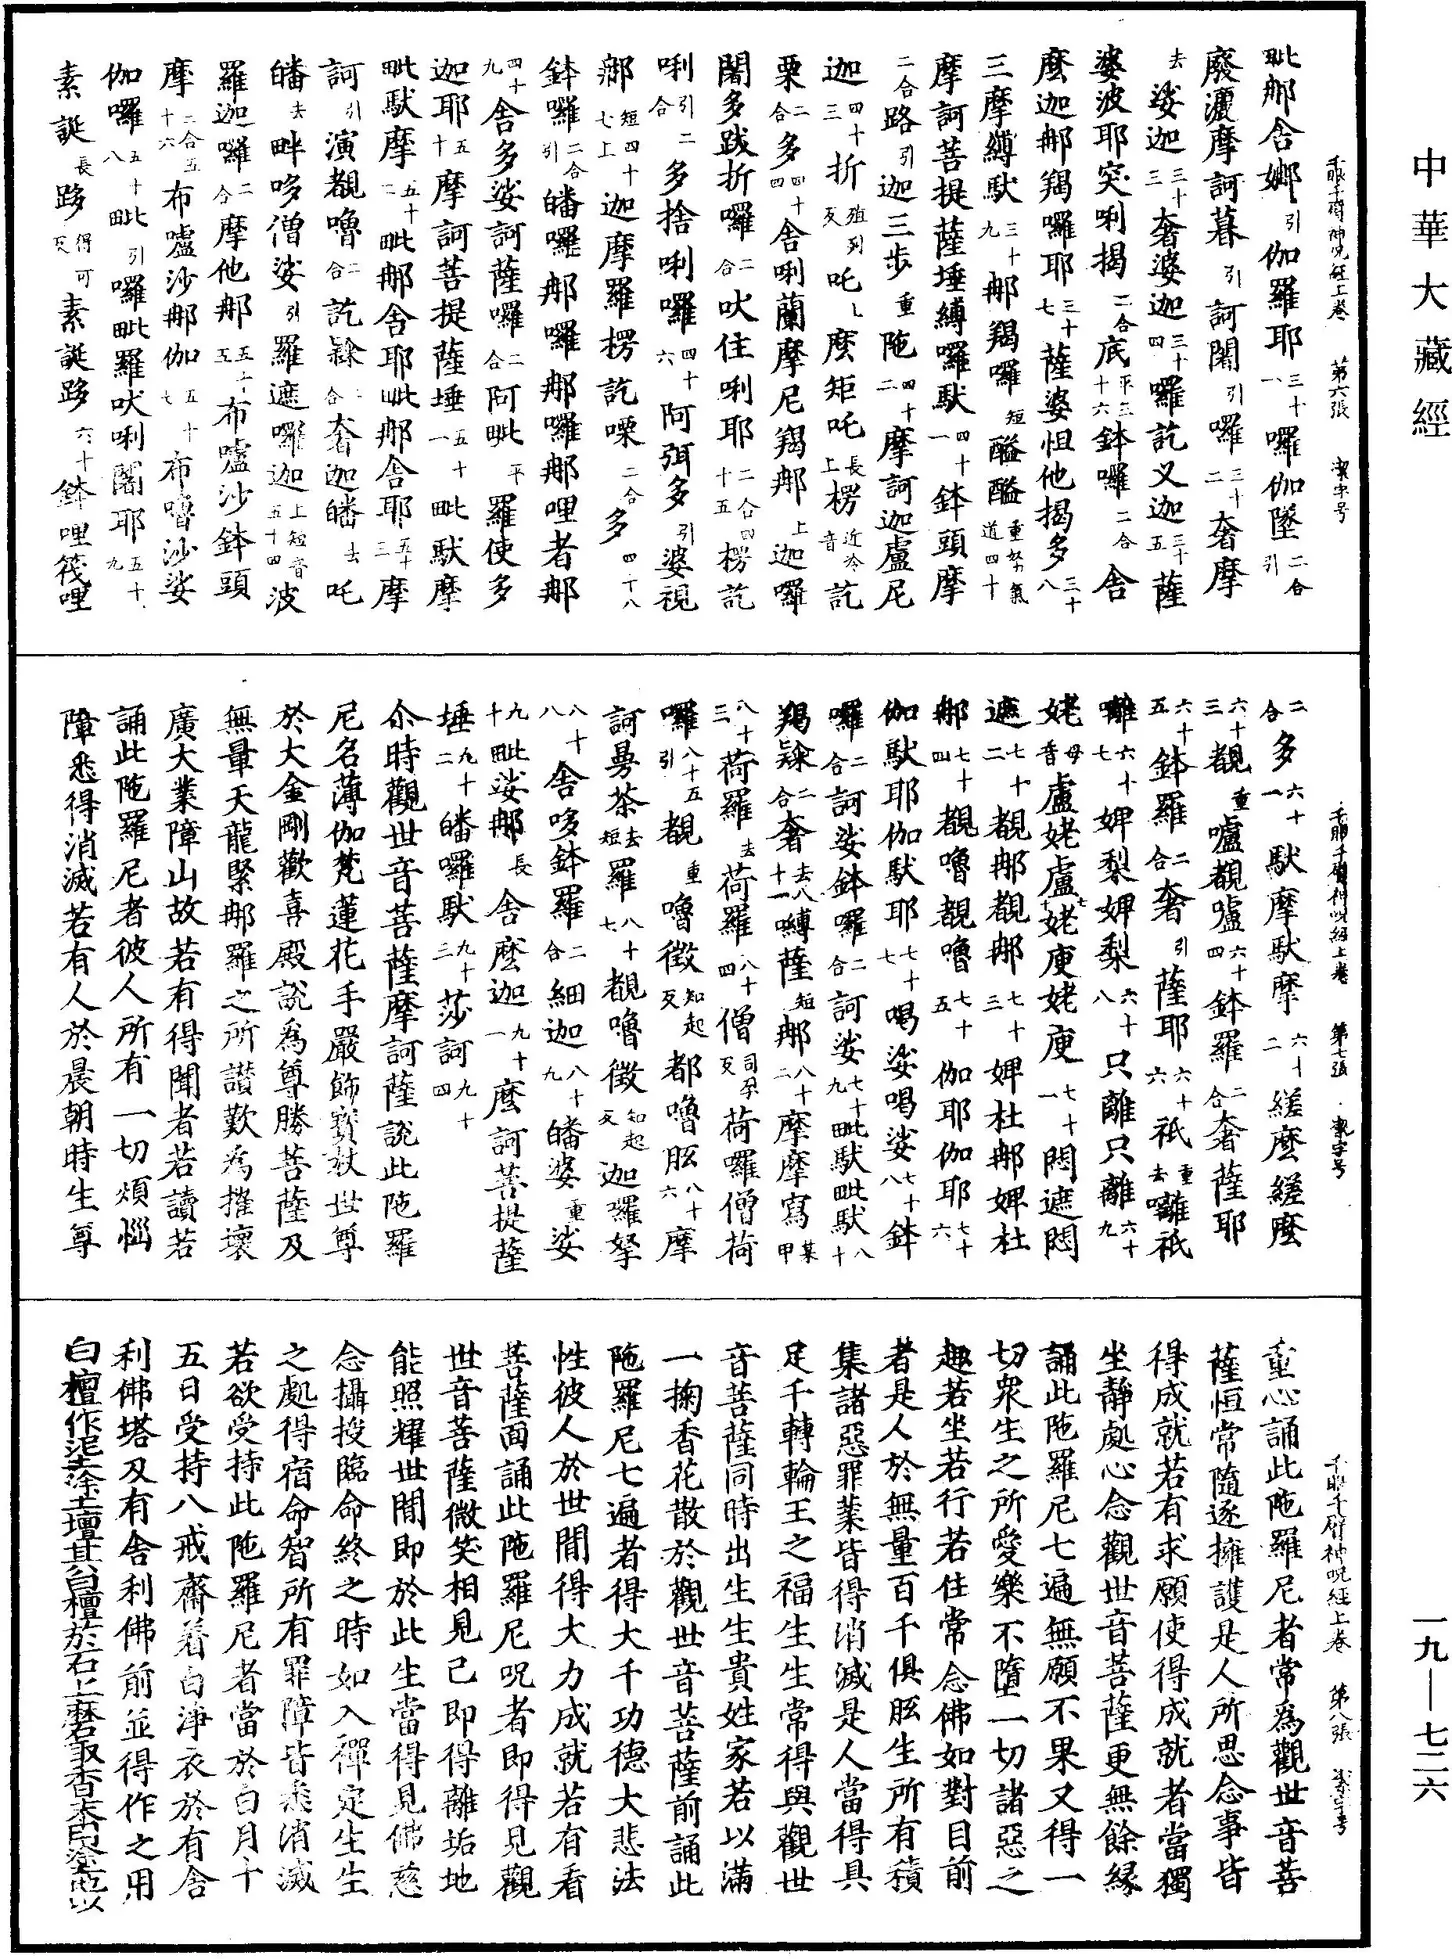 中華大藏經
一九—七二六
千眼千臂神呪經上卷 第六張 潔字号
毗那舍娜引伽羅耶三十一囉伽墜二合引
廢灑摩訶暮引訶闍引囉三十二奢摩
去娑迦三十三奢婆迦三十四囉訖叉迦三十五薩
婆波耶突唎揭二合底平三十六鉢囉二合舍
麼迦那羯囉耶三十七薩婆怛他揭多三十八
三摩縛馱三十九那羯囉短醯醯重努氣道四十
摩訶菩提薩埵縛囉馱四十一鉢頭摩
二合路引迦三步重陁四十二摩訶迦盧尼
迦四十三折殖列反吒上麼矩吒長上楞近冷音訖
栗二合多四十四舍唎蘭摩尼羯那上迦囉
闍多跋折囉二合吠住唎耶二合四十五楞訖
唎引二合多捨唎囉四十六阿弭多引婆視
那短四十七上迦摩羅楞訖㗚二合多四十八
鉢囉二合引皤囉那囉那囉那哩者那
四十九舍多娑訶薩囉二合阿毗平羅使多
迦耶五十摩訶菩提薩埵五十一毗馱摩
毗馱摩五十二毗那舍耶毗那舍耶五十三摩
訶引演覩嚕二合訖𨱎二合奢伽皤去吒
皤去畔哆僧娑引羅遮囉迦上短音五十四波
羅迦囉二合摩他那五十五布嚧沙鉢頭
摩二合五十六布嚧沙那伽五十七布嚕沙娑
伽囉五十八毗引囉毗羅吠唎闍耶五十九
素誕長路得可反素誕路六十鉢哩筏哩
千眼千臂神呪經上卷 第七張 潔字号
二合多六十一馱摩馱摩六十二縒麼縒麼
六十三覩重嚧覩嚧六十四鉢羅二合奢薩耶
六十五鉢羅二合奢引薩耶六十六祇去重囄祇
囄六十七婢梨婢梨六十八只離只離六十九
姥母音盧姥盧七十姥庾姥庾七十一悶遮悶
遮七十二覩那覩那七十三婢杜那婢杜
那七十四覩嚕覩嚕七十五伽耶伽耶七十六
伽馱耶伽馱耶七十七喝娑喝娑七十八鉢
囉二合訶娑鉢囉二合訶娑七十九毗馱毗馱八十
羯𨱎二合奢去八十一縛薩短那八十二摩摩寫某甲
八十三荷羅去荷羅八十四僧司孕反荷囉僧荷
囉引八十五覩重嚕徵知起反都嚕胝八十六摩
訶曼荼去短羅八十七覩嚕徵知起反迦囉拏
八十八舍哆鉢羅二合細迦八十九皤婆重娑
九十毗娑那長舍麼迦九十一麼訶菩提薩
埵九十二皤囉馱九十三莎訶九十四
尒時觀世音菩薩摩訶薩說此陁羅
尼名薄伽梵蓮花手嚴飾寶杖世尊
於大金剛歡喜殿說為尊勝菩薩及
無量天龍緊那羅之所讃歎為摧壞
廣大業障山故若有得聞者若讀若
誦此陁羅尼者彼人所有一切煩惱
障悉得消滅若有人於晨朝時生尊
千眼千臂神呪經上卷 第八張 潔字号
重心誦此陁羅尼者常為觀世音菩
薩恒常隨逐擁護是人所思念事皆
得成就若有求願使得成就者當獨
坐靜處心念觀世音菩薩更無餘緣
誦此陁羅尼七遍無願不果又得一
切衆生之所愛樂不墮一切諸惡之
趣若坐若行若住常念佛如對目前
者是人於無量百千俱胝生所有積
集諸惡罪業皆得消滅是人當得具
足千轉輪王之福生生常得與觀世
音菩薩同時出生生貴姓家若以滿
一掬香花散於觀世音菩薩前誦此
陁羅尼七遍者得大千功德大悲法
性彼人於世間得大力成就若有看
菩薩面誦此陁羅尼呪者即得見觀
世音菩薩微笑相見已即得離垢地
能照耀世間即於此生當得見佛慈
念攝授臨命終之時如入禪定生生
之處得宿命智所有罪障皆悉消滅
若欲受持此陁羅尼者當於白月十
五日受持八戒齋着白淨衣於有舍
利佛塔及有舍利佛前並得作之用
白檀作埿塗壇其白檀於石上磨取香㭍即塗地以